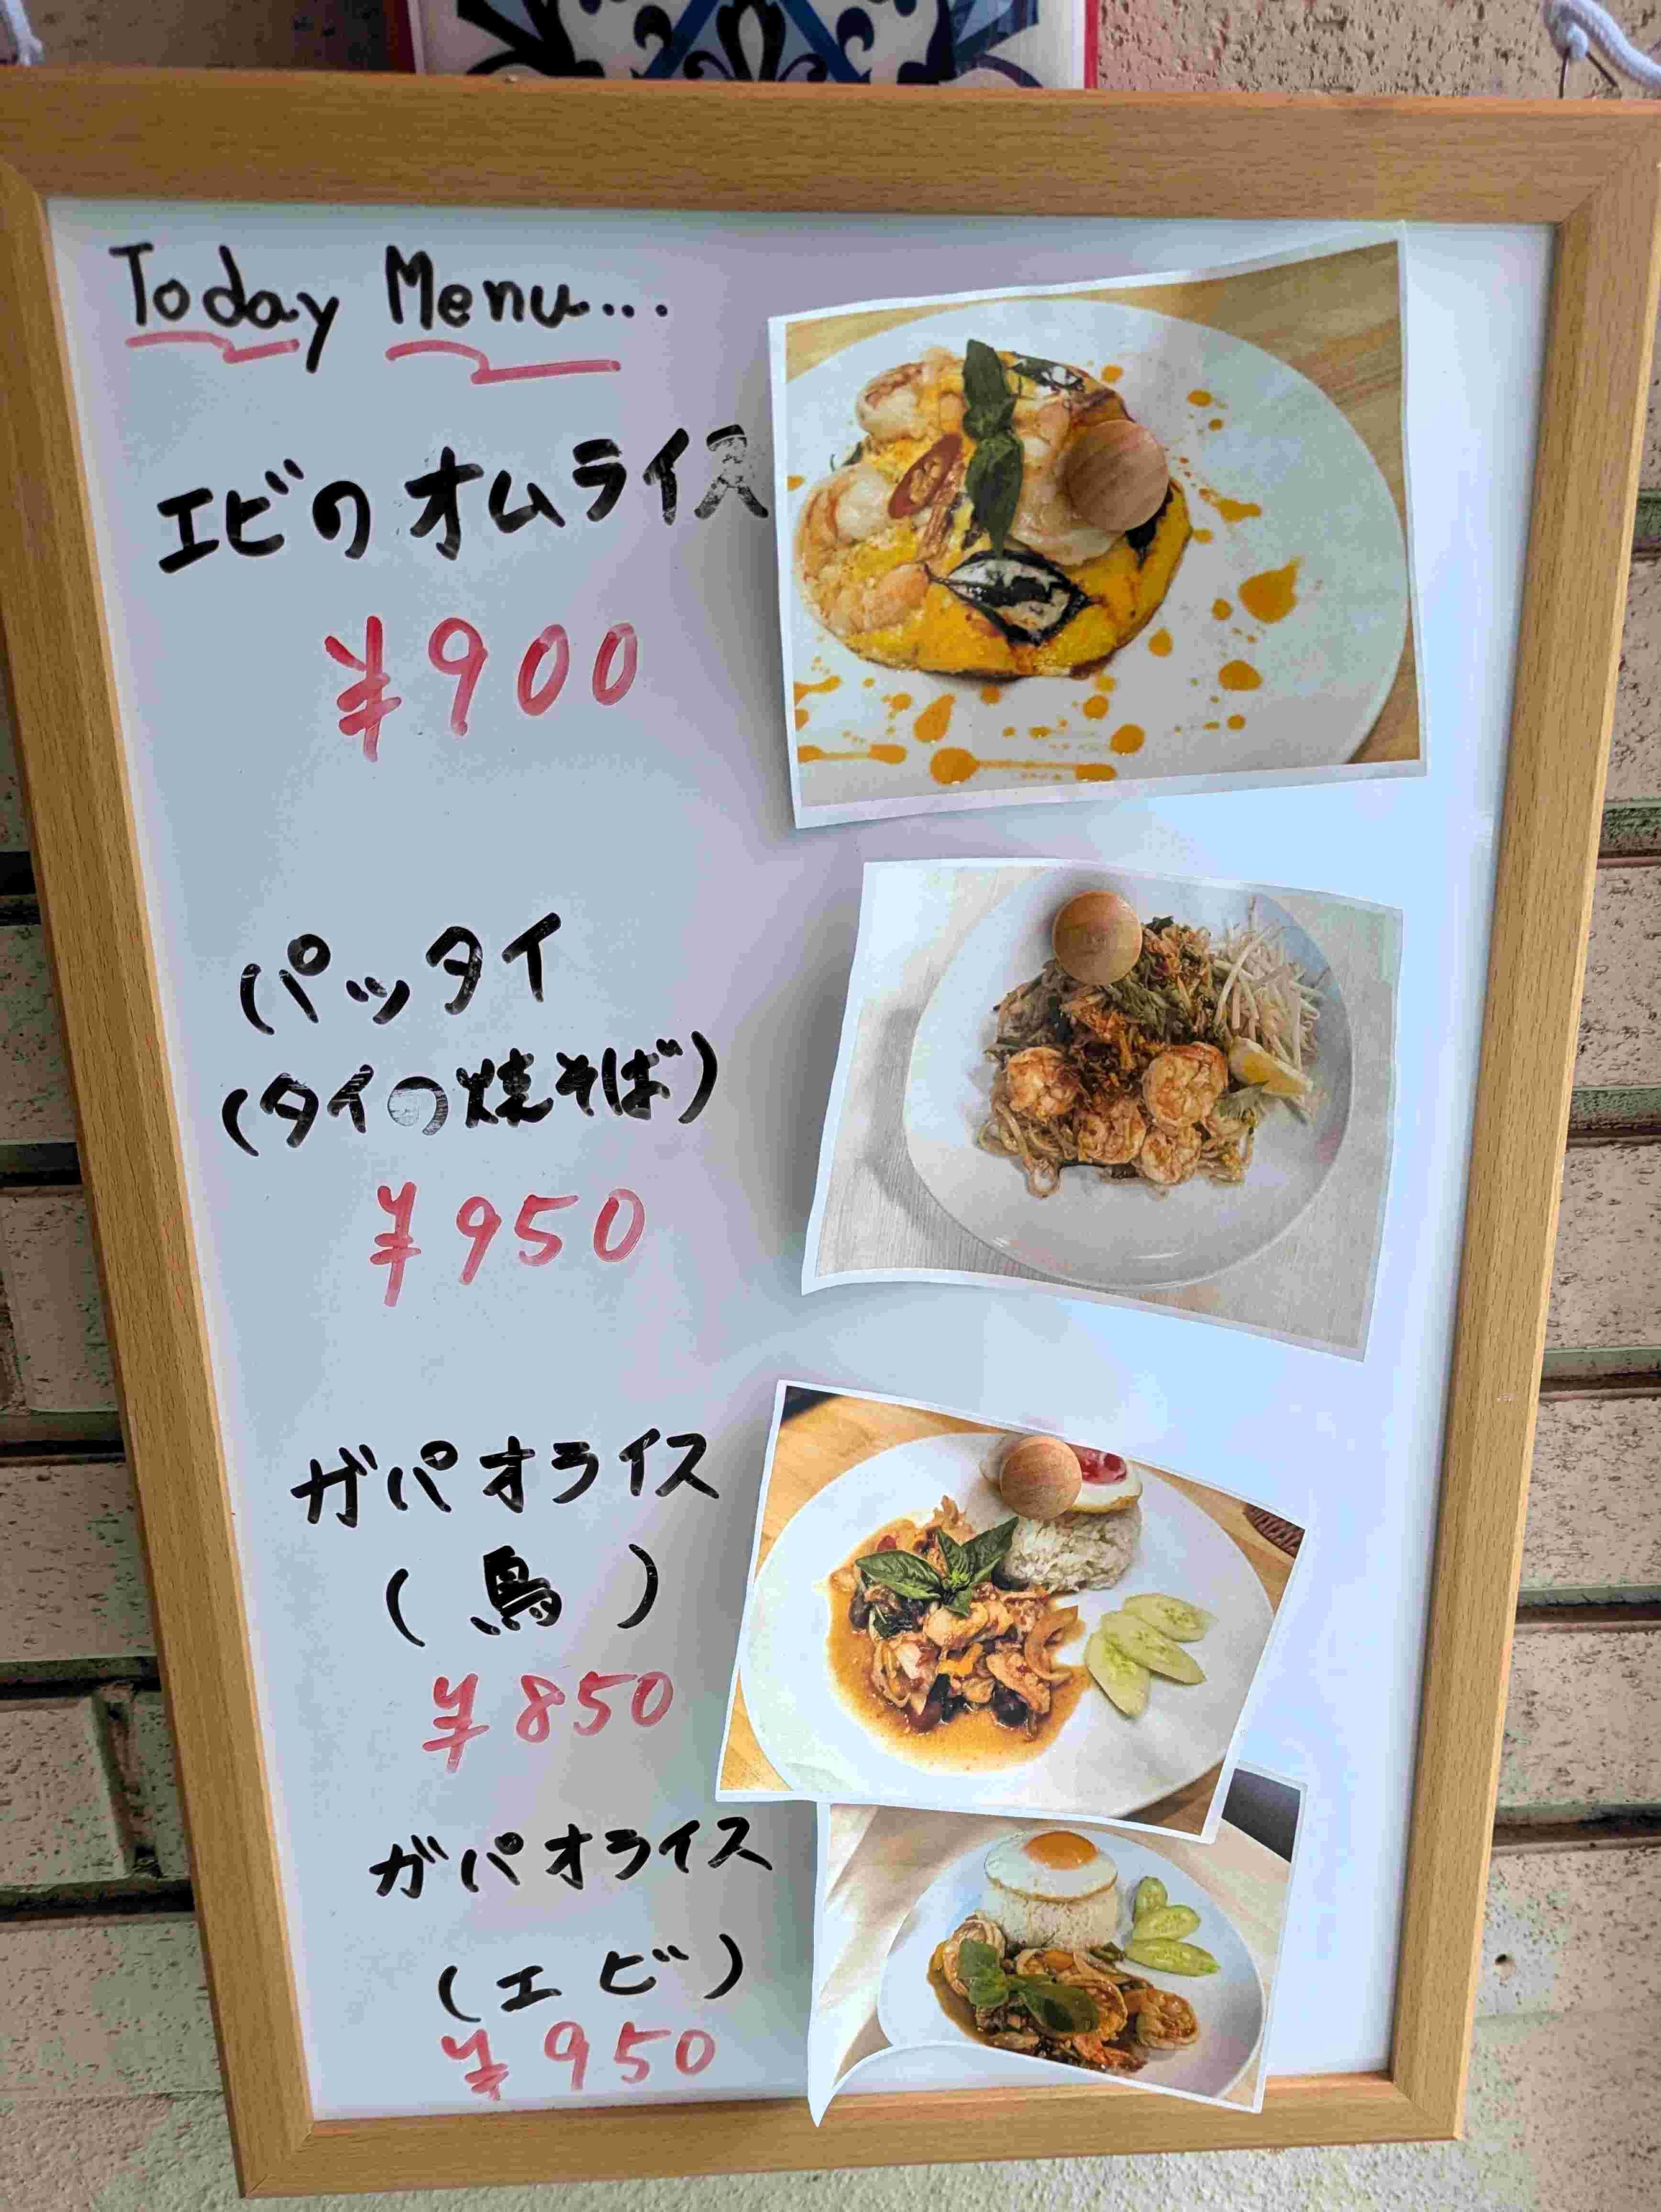 Today Menu...
エビのオムライス
¥900
パッタイ
(タイの焼そば)
¥950
ガパオライス
(鳥)
¥850
ガパオライス
(エビ)
¥950